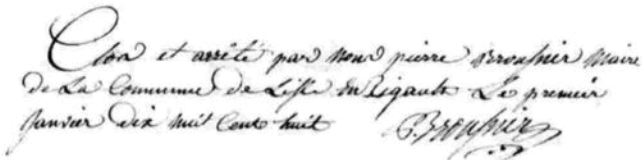 Clos et arrêté par nous pierre Broussier Maire
de La Commune de Lisle en Rigault Le premier
Janvier dix huit Cent huit P. Broussier